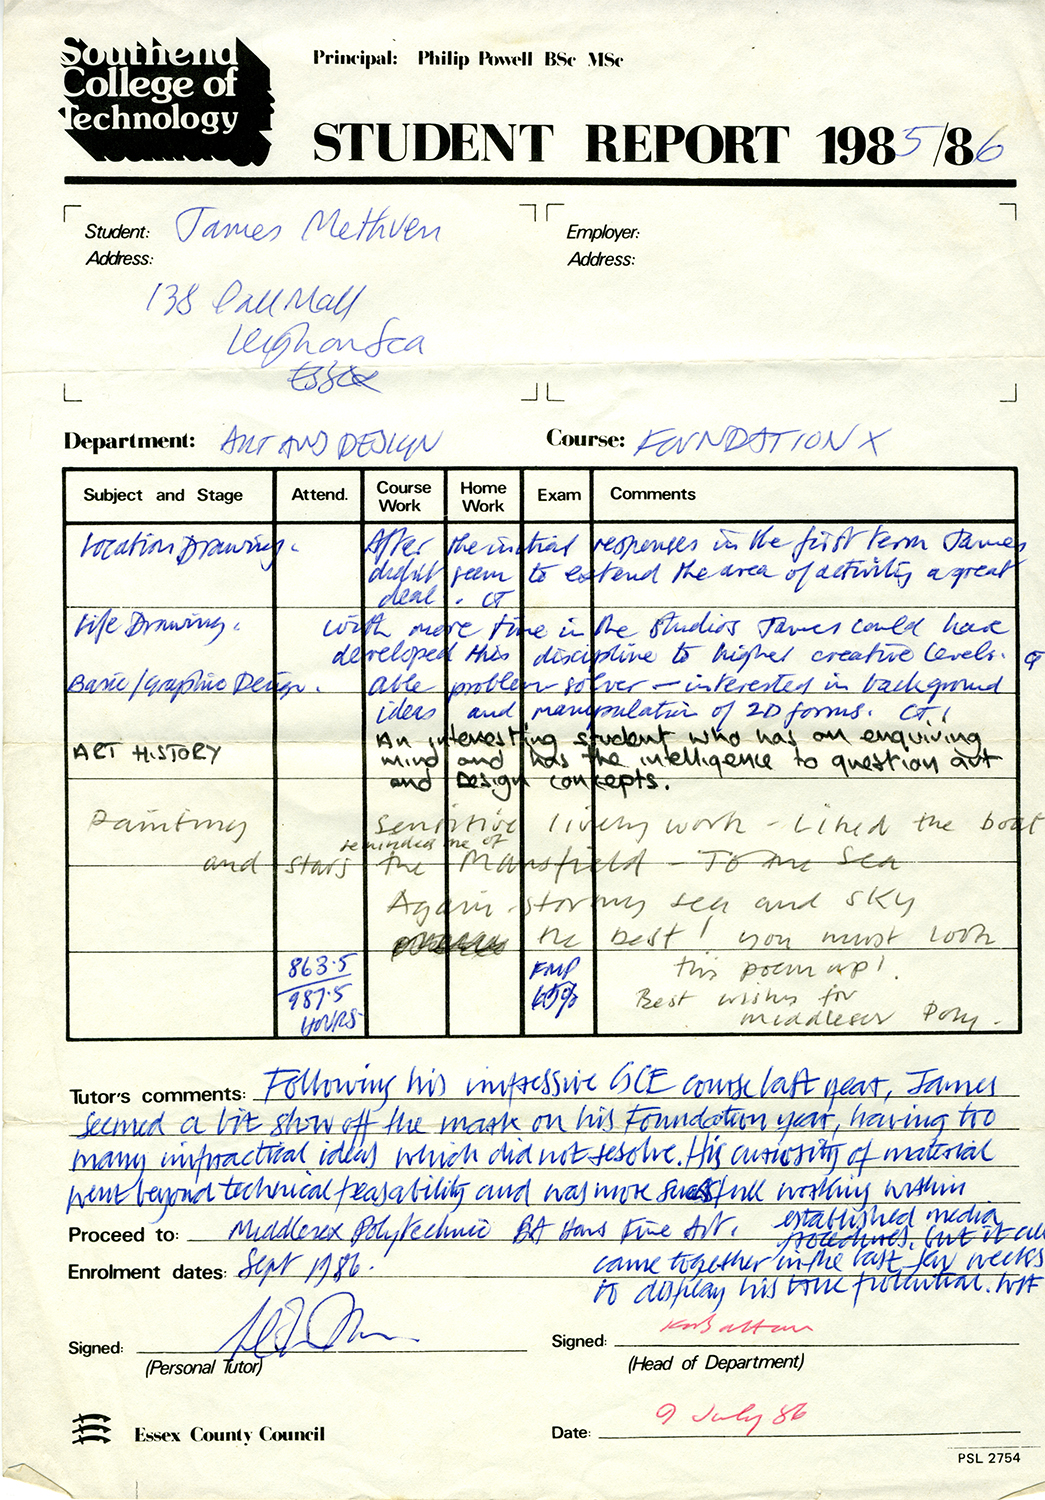 Southend
College of
Technology
Principal: Philip Powell BSc MSc
STUDENT REPORT 1985/86
Student: James Methven
Address:
138 Pall Mall
Leigh on Sea
Essex
Employer:
Address:
Department: ART AND DESIGN
Course: FOUNDATION X
Subject and Stage Attend. Course Work Home Work Exam Comments
Location Drawing. After the initial responses in the first term James
didnt seem to extend the area of activity a great
deal. CT
Life Drawing. with more time in the studios James could have
developed this discipline to higher creative levels. CT
Basic/Graphic Design. able problem solver – interested in background
ideas and manipulation of 2D forms. CT
ART HISTORY An interesting student who has an enquiring
mind and has the intelligence to question art
and Design concepts.
Painting sensitive lively work – Liked the boat
and stars reminded me of the Mansfield – To the Sea
Again – stormy sea and sky
the best! you must look
this poem up!
Best wishes for
Middlesex Poly.
863.5
987.5
HOURS
FMP
65%
Tutor's comments: Following his impressive GCE course last year, James
seemed a bit slow off the mark on his Foundation year, having too
many impractical ideas which did not resolve. His curiosity of material
went beyond technical feasability and was more successful working within
established media
procedures, but it all
came together in the last few weeks
to display his true potential.
Proceed to: Middlesex Polytechnic BA Hons Fine Art.
Enrolment dates: Sept 1986.
Signed:
(Personal Tutor)
Signed:
(Head of Department)
Essex County Council
Date: 9 July 86
PSL 2754